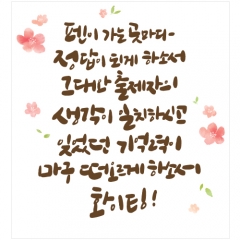 펜이 가는 곳마다
정답이 되게 하소서
그대와 출제자의
생각이 일치하시고
잊었던 기억력이
마구 떠오르게 하소서
화이팅!